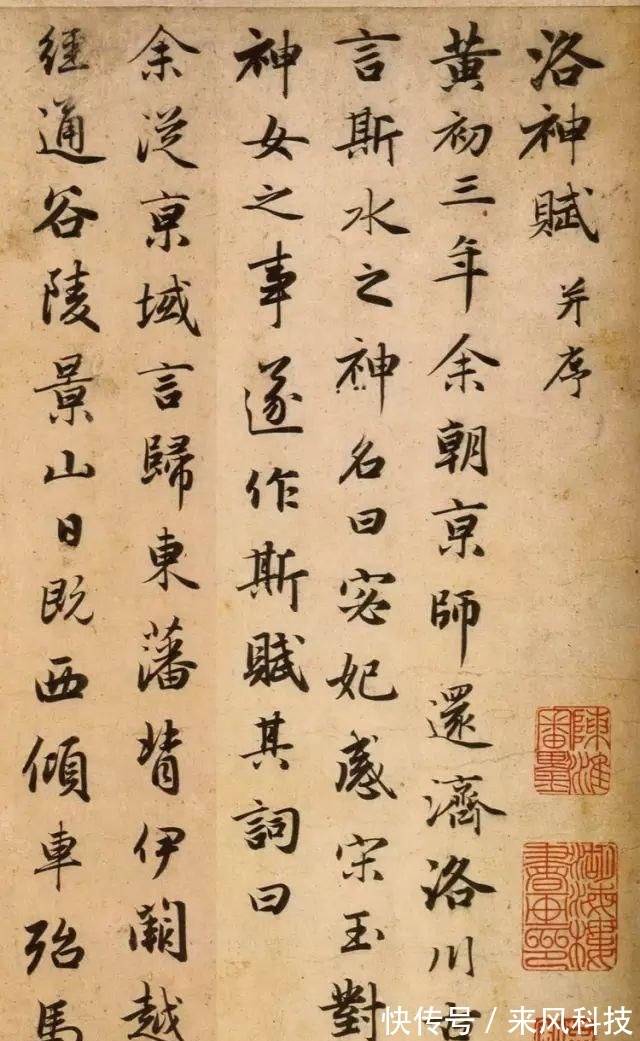 洛神賦 并序
黄初三年余朝京師還濟洛川古
言斯水之神名曰宓妃感宋玉對
神女之事遂作斯賦其詞曰
余從京域言歸東藩背伊闕越
經通谷陵景山日既西傾車殆馬
快传号 / 来风科技